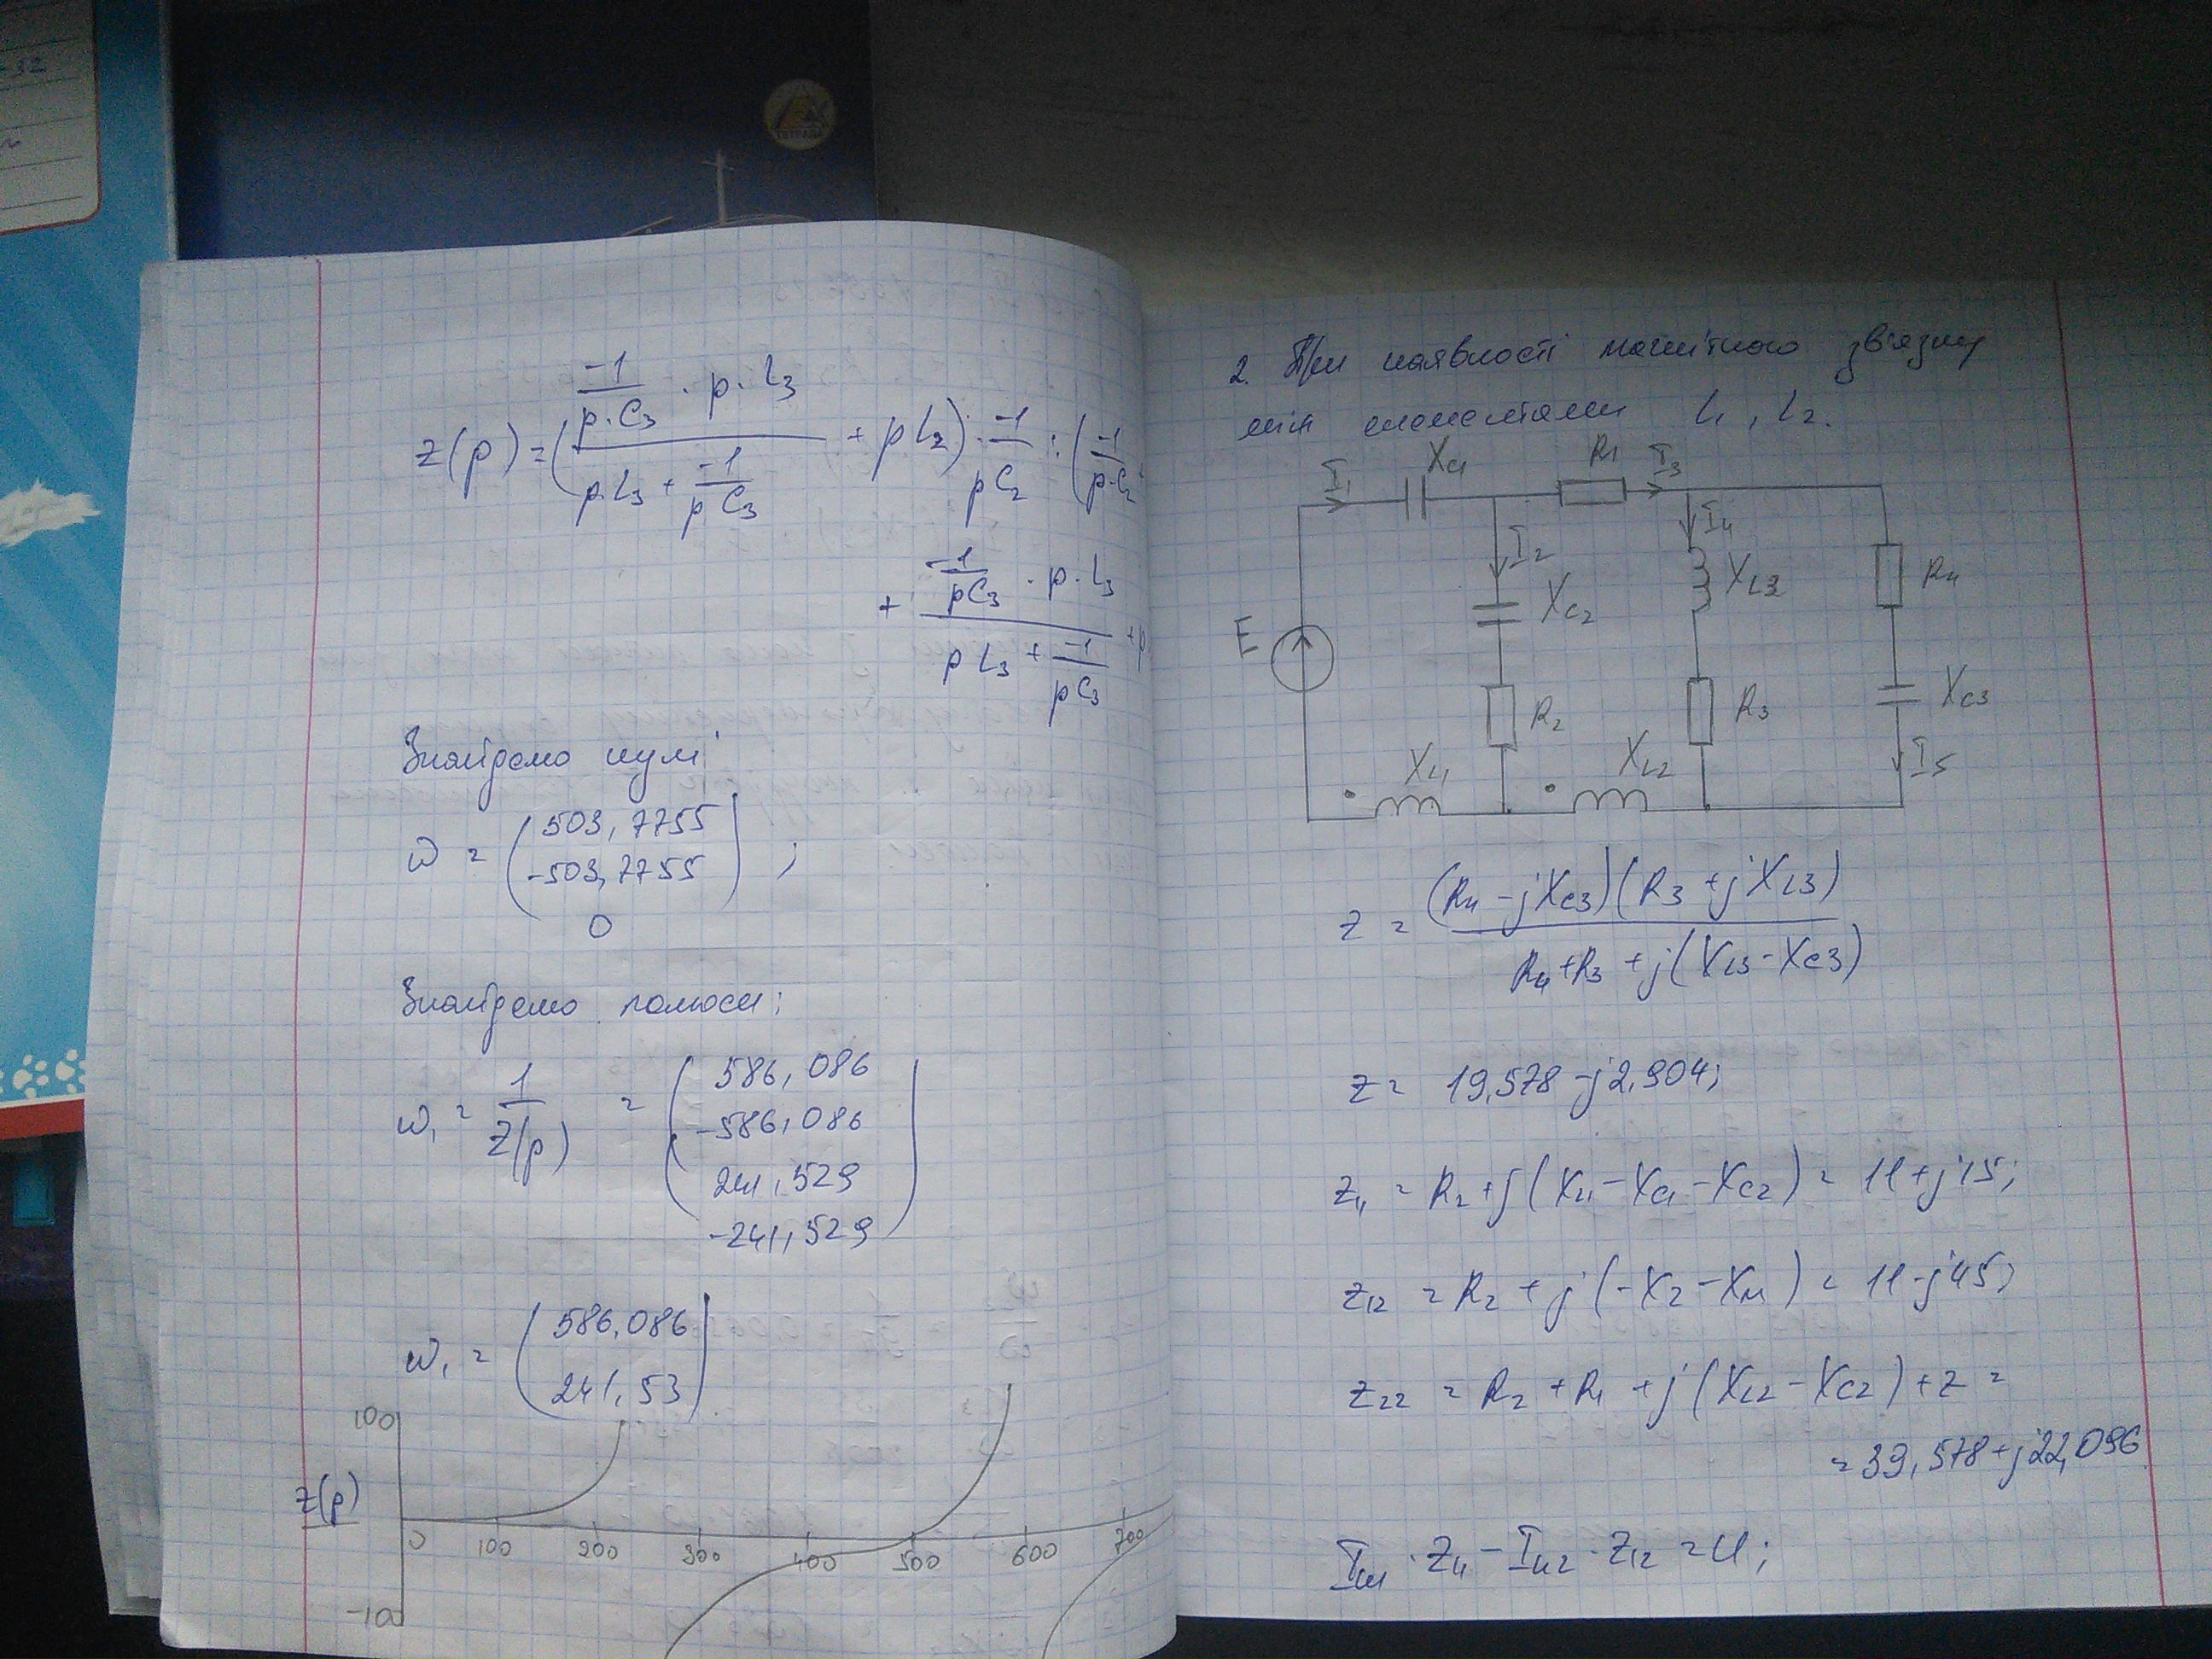 -32
ТЕТРАДА
z(p) = ( (-1/(p·C₃) · p·L₃) / (p·L₃ + -1/(pC₃)) + pL₂) · -1/(pC₂) : ( -1/(p·C₂)
+ (-1/(pC₃) · p·L₃) / (pL₃ + -1/(pC₃)) + p
Знайдемо нулі
ω = ( 503,7755
-503,7755
0 ) ;
Знайдемо полюси;
ω₁ = 1/Z(p) = ( 586,086
-586,086
241,529
-241,529 )
ω₁ = ( 586,086
241,53 )
100
z(p)
0 100 200 300 400 500 600 700
-100
2. При наявності магнітного зв'язку
між елементами L₁, L₂.
I₁ XC1 R1 I3
I4
I2
XL3 R4
E XC2
R2 R3 XC3
XL1 XL2 I5
z = (R4 - jXC3)(R3 + jXL3) / (R4 + R3 + j(XL3 - XC3))
z = 19,578 - j2,904;
z₁₁ = R₂ + j(XL1 - XC1 - XC2) = 11 + j15;
z₁₂ = R₂ + j(-X₂ - XM) = 11 - j45;
z₂₂ = R₂ + R₁ + j(XL2 - XC2) + z =
= 39,578 + j22,096
Iк1 · Z₁₁ - Iк2 · Z₁₂ = U;